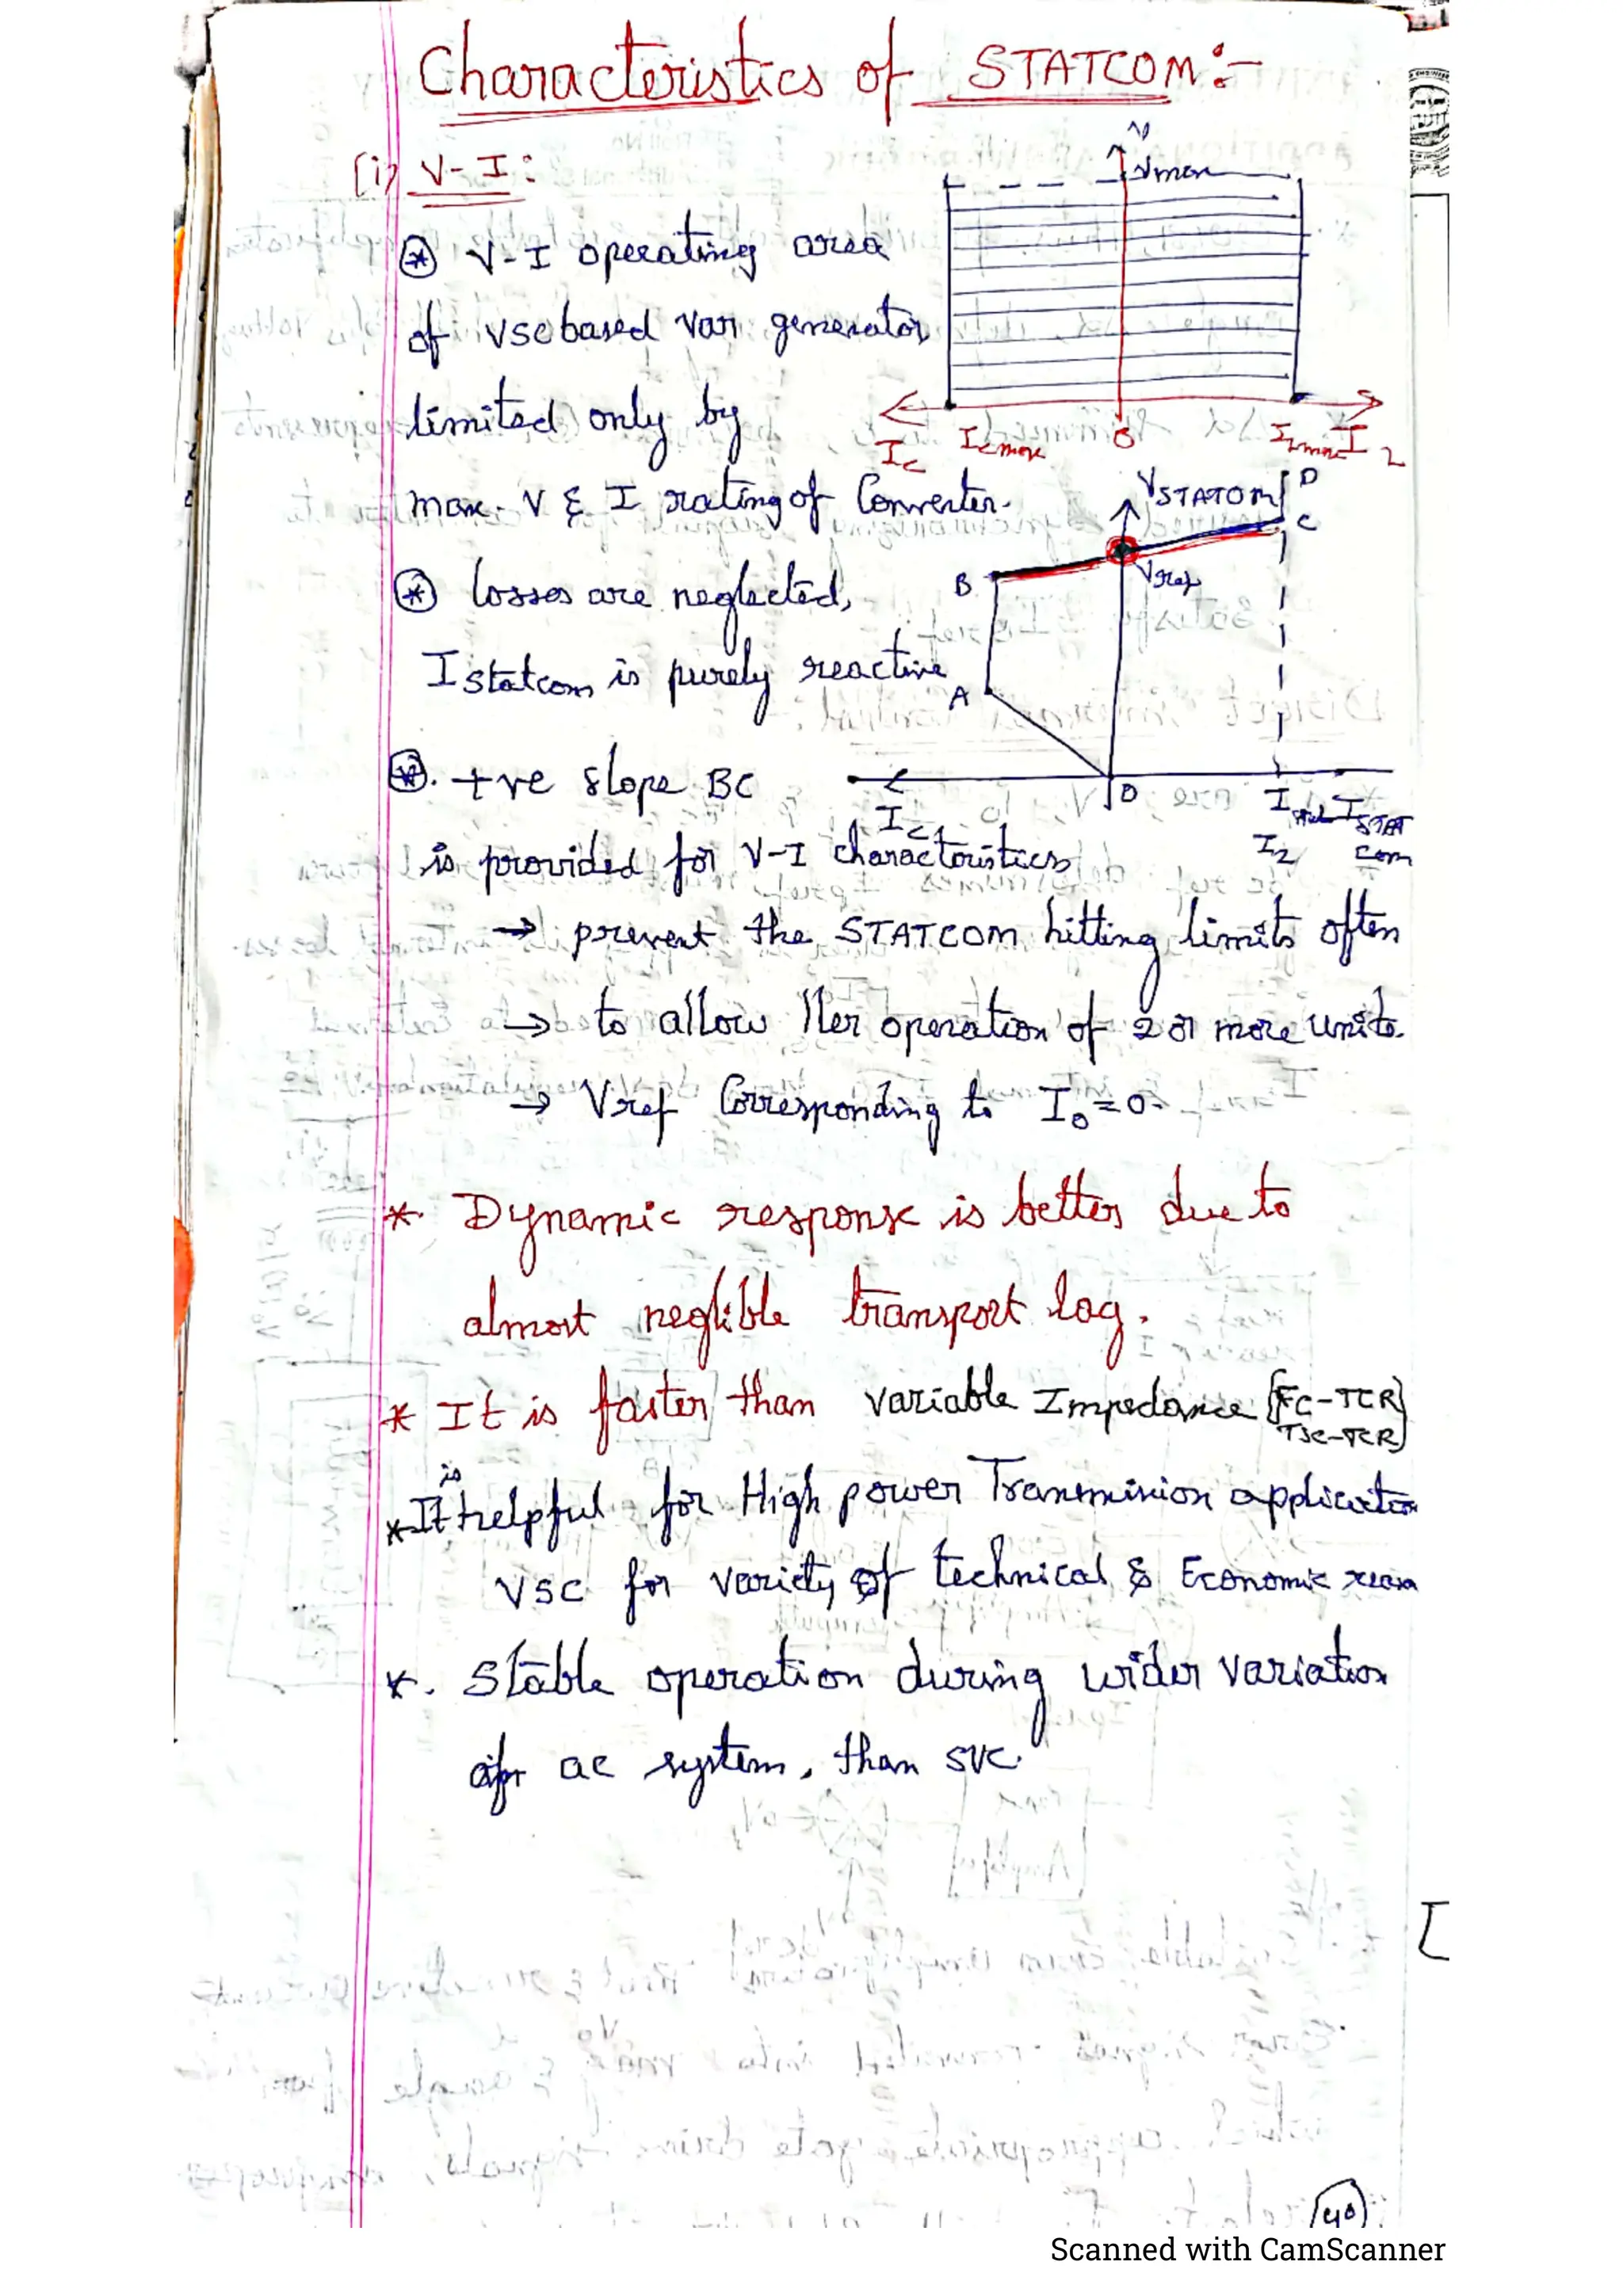 Characteristics of STATCOM:-
(i) V-I:
V
Vmax
⊛ V-I operating area
of VSC based Var generator
limited only by
Ic Icmax 0 ILmax IL
max. V & I rating of Converter.
VSTATOM D
C
B
Vref
⊛ losses are neglected,
Istatcom is purely reactive
A
⊛. +ve slope BC
Ic 0
is provided for V-I characteristics
→ prevent the STATCOM hitting limits often
→ to allow ller operation of 2 or more units.
→ Vref Corresponding to Io = 0.
*. Dynamic response is better due to
almost neglible transport lag.
* It is faster than variable Impedance [FC-TCR
TSC-TCR]
* It is helpful for High power Transmission application
VSC for variety of technical & Economic reason
*. Stable operation during wider variation
ac system, than SVC.
[
40
Scanned with CamScanner